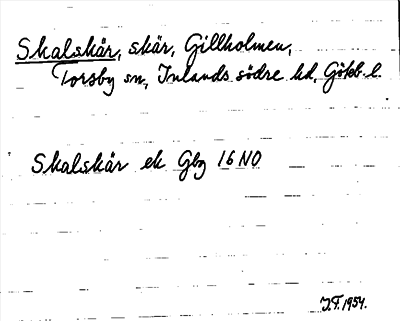 Skalskär, skär, Gillholmen,
Torsby sn, Inlands södre hd, Götb. l.
Skalskär ek Gbg 16 NO
J.F. 1954.